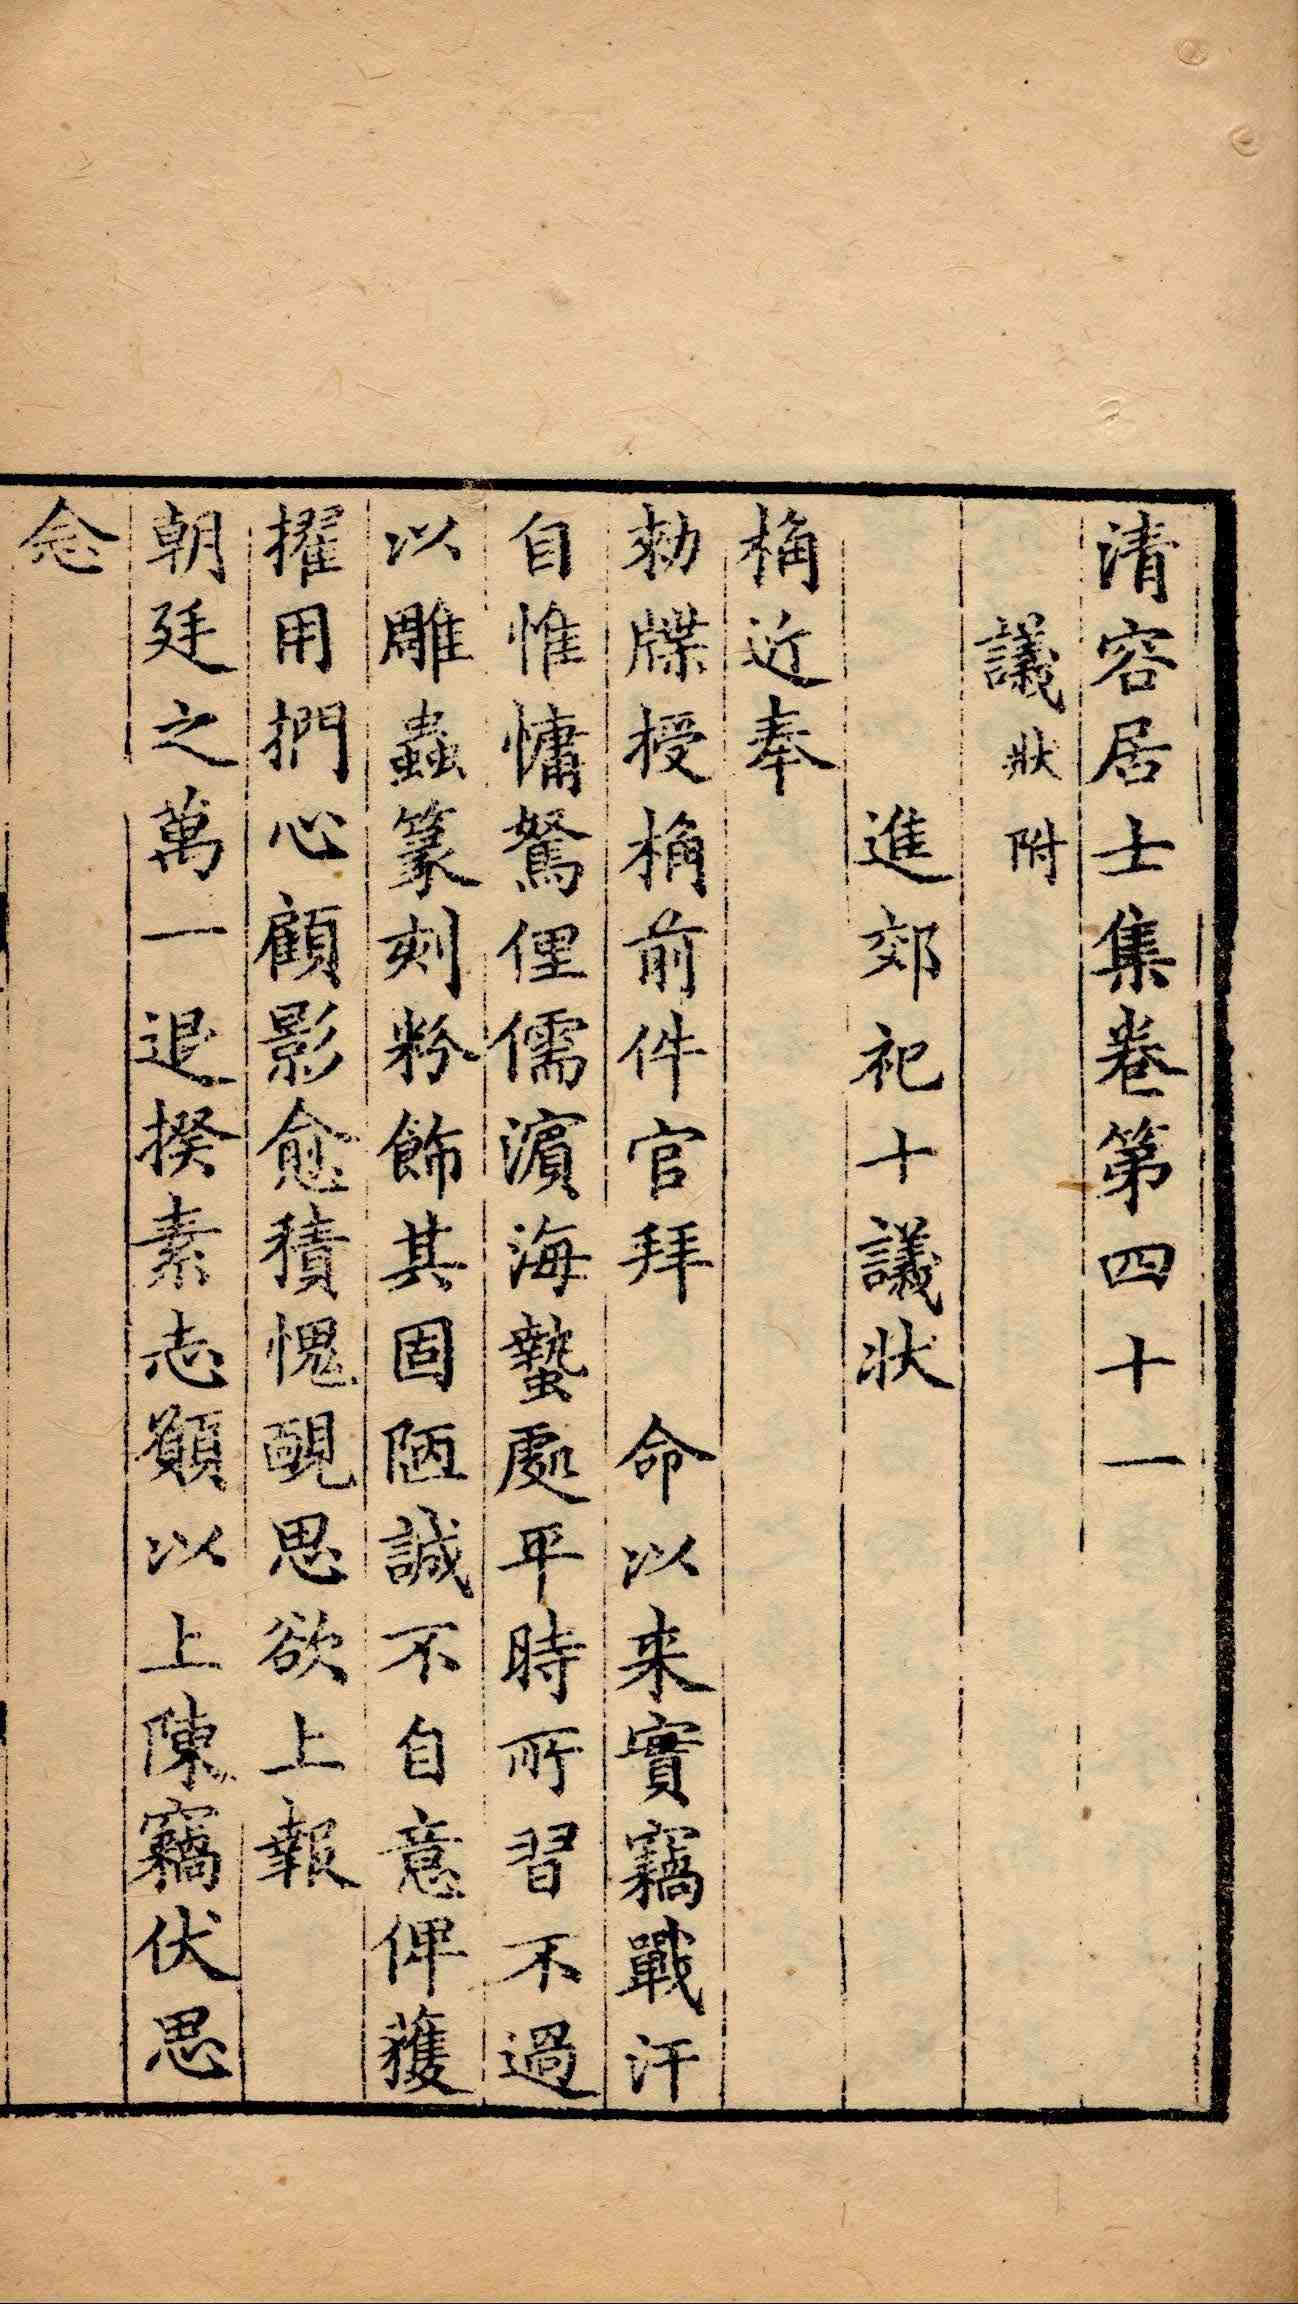 清容居士集卷第四十一
議狀附
進郊祀十議狀
桷近奉
勑牒授桷前件官拜　命以来實竊戰汗
自惟慵駑俚儒濵海蟄處平時所習不過
以雕蟲篆刻粉飾其固陋誠不自意俾獲
擢用捫心顧影愈積愧靦思欲上報
朝廷之萬一退揆素志願以上陳竊伏思
念